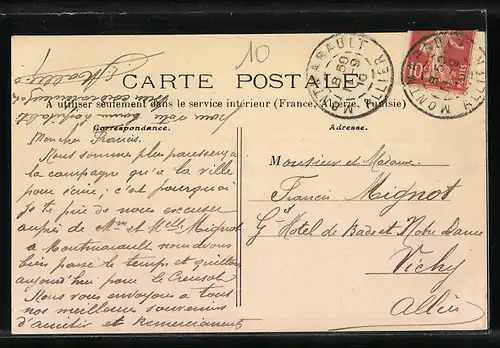 10
CARTE POSTALE
A utiliser seulement dans le service intérieur (France, Algérie, Tunisie)
Correspondance.
Adresse.
MONTMARAULT
ALLIER
Mon cher Francis.
Nous sommes plus paresseux à
la campagne qu'a la ville
pour écrire; c'est pourquoi
Je te prie de nous excuser
auprès de Mme et Melle Mignot
a Montmarault nous avons
bien passé le temps et quittons
aujourd'hui pour le Creusot
Nous vous envoyons a tous
nos meilleurs souvenirs
d'amitiés et Remerciements
Monsieur et Madame
Francis Mignot
Gd Hôtel de Bade et Notre Dame
Vichy
Allier